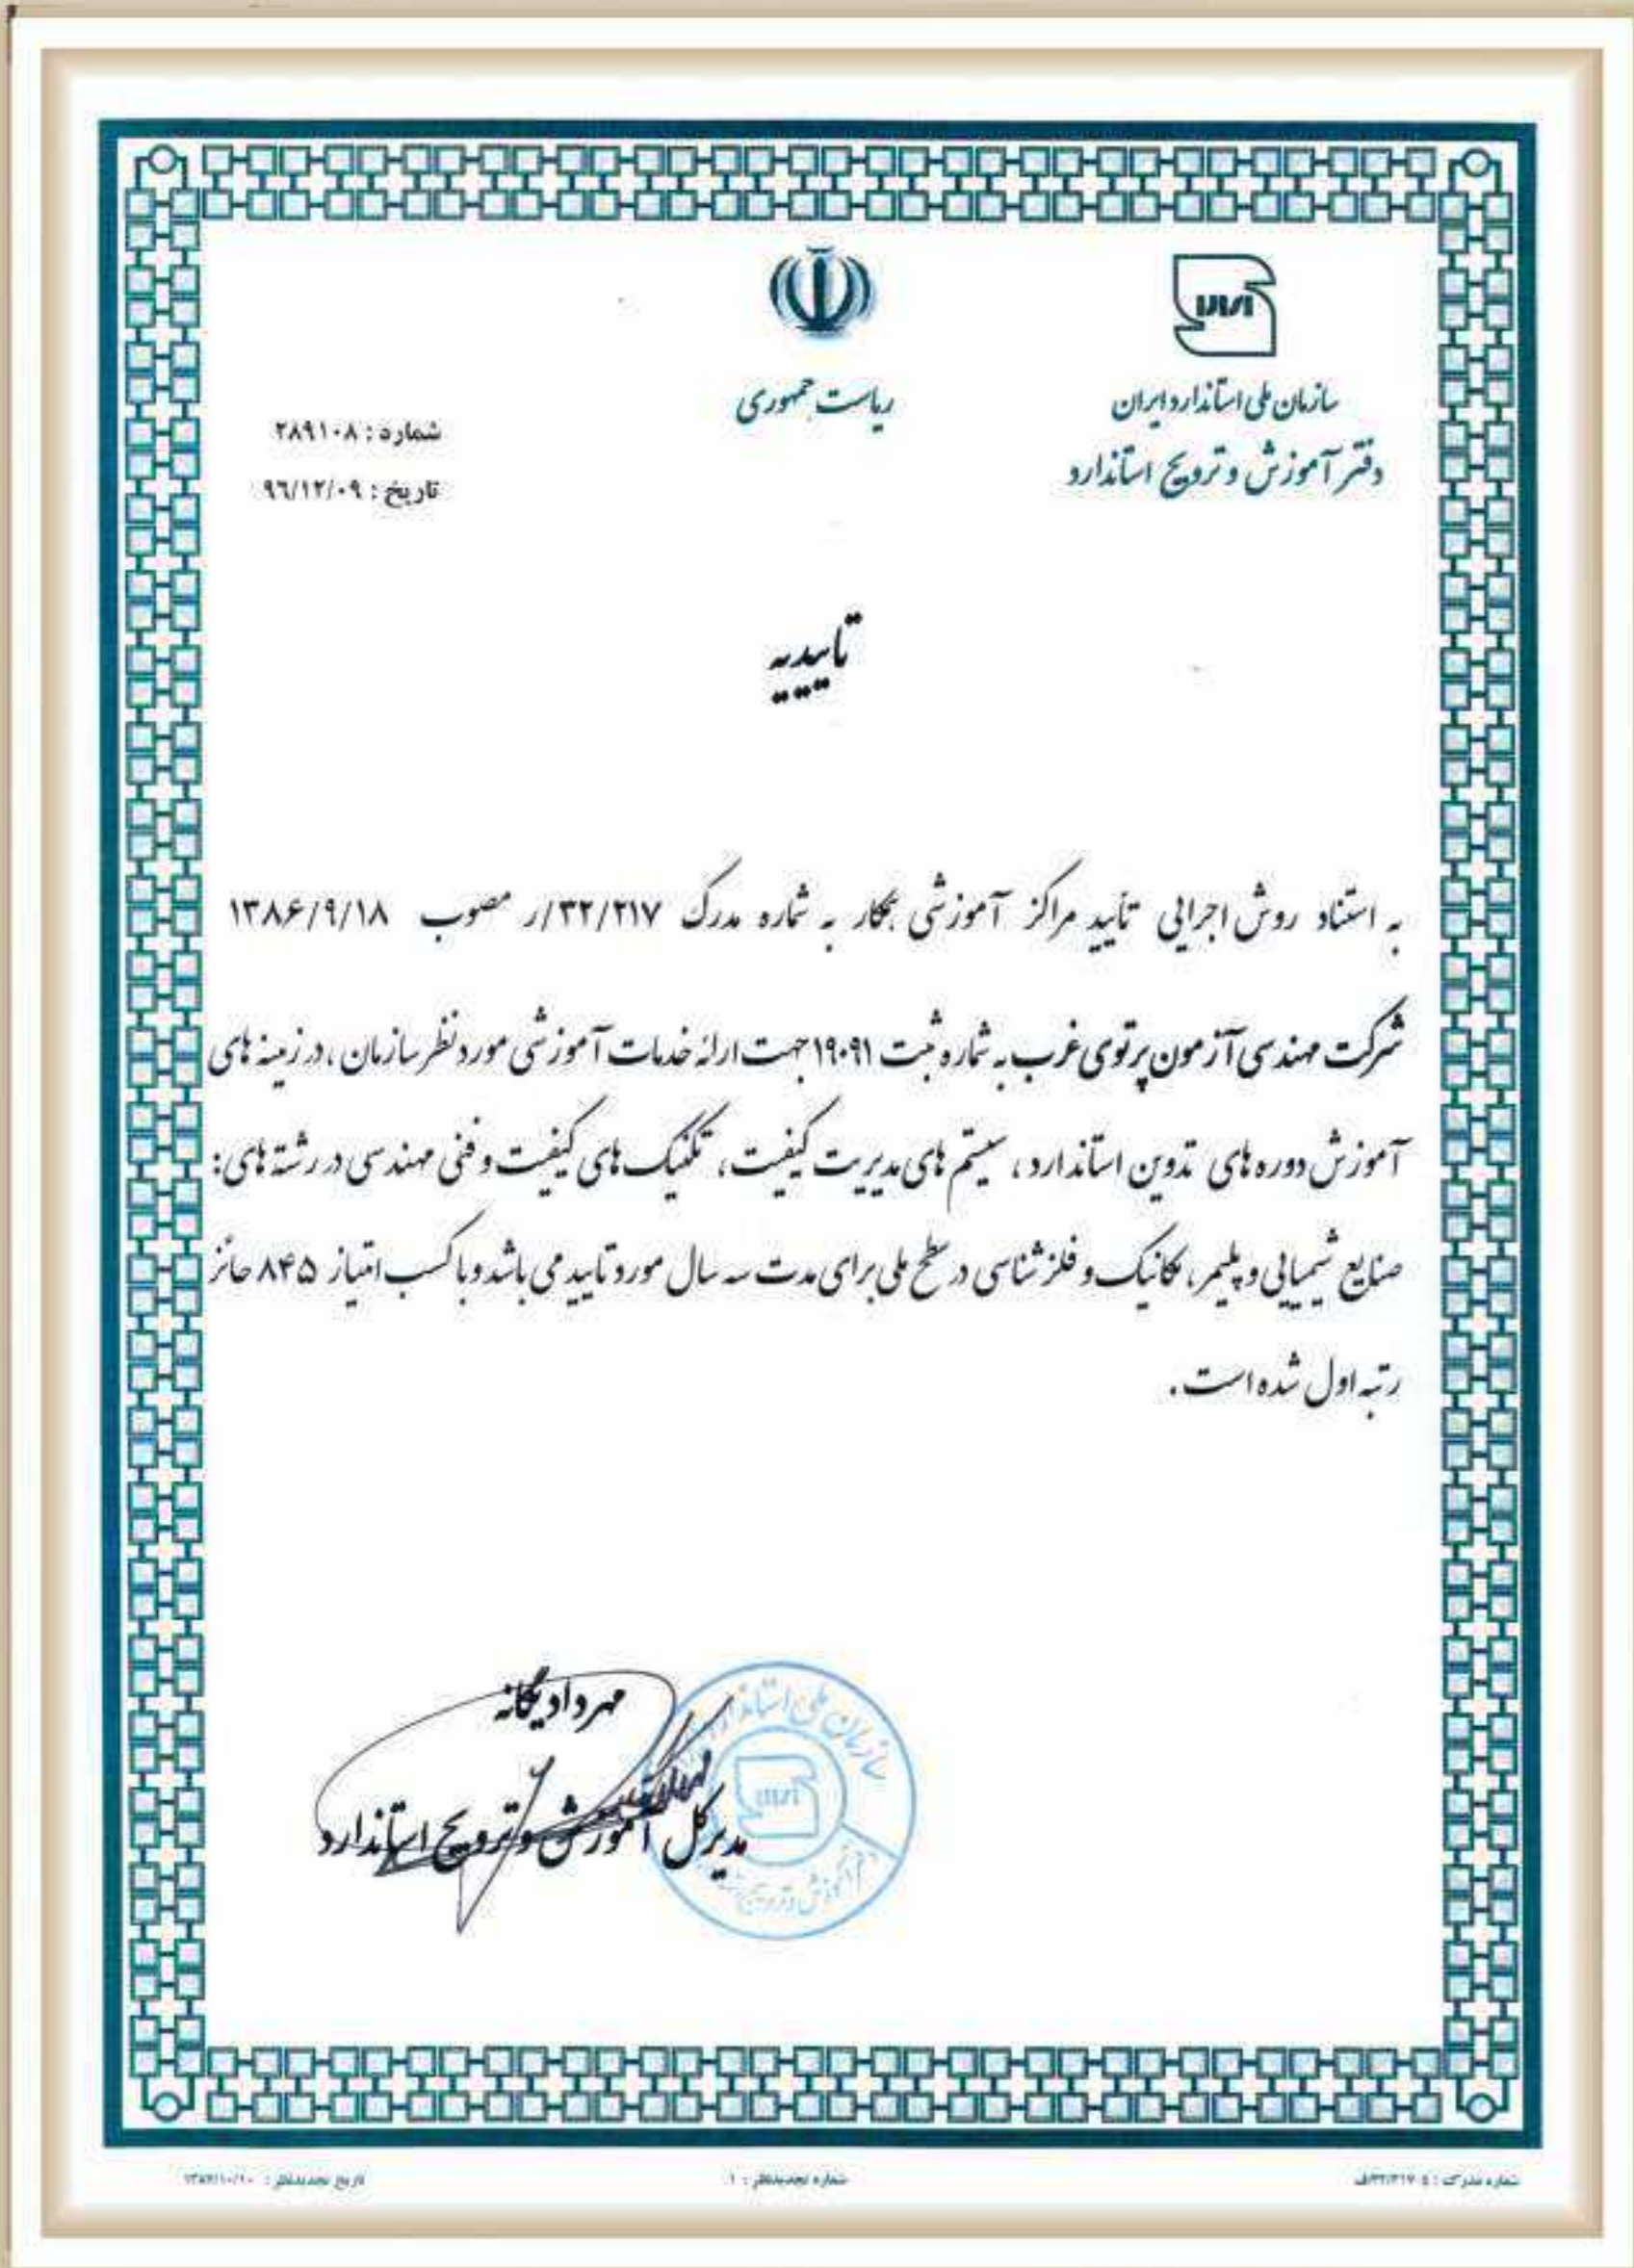 سازمان ملی استاندارد ایران
دفتر آموزش و ترویج استاندارد
ریاست جمهوری
شماره : ۲۸۹۱۰۸
تاریخ : ۹۶/۱۲/۰۹
تاییدیه
به استناد روش اجرایی تأیید مراکز آموزشی همکار به شماره مدرک ۳۲/۲۱۷/ر مصوب ۱۳۸۶/۹/۱۸
شرکت مهندسی آزمون پرتوی غرب به شماره ثبت ۱۹۰۹۱ جهت ارائه خدمات آموزشی مورد نظر سازمان ، در زمینه های
آموزش دوره های تدوین استاندارد ، سیستم های مدیریت کیفیت ، تکنیک های کیفیت و فنی مهندسی در رشته های :
صنایع شیمیایی و پلیمر ، مکانیک و فلزشناسی در سطح ملی برای مدت سه سال مورد تایید می باشد و با کسب امتیاز ۸۴۵ حائز
رتبه اول شده است .
مهرداد یگانه
مدیرکل آموزش و ترویج استاندارد
سازمان ملی استاندارد
دفتر آموزش و ترویج
شماره مدرک : ۳۲/۲۱۷۰۵/ف
شماره تجدیدنظر : ۱
تاریخ تجدیدنظر :